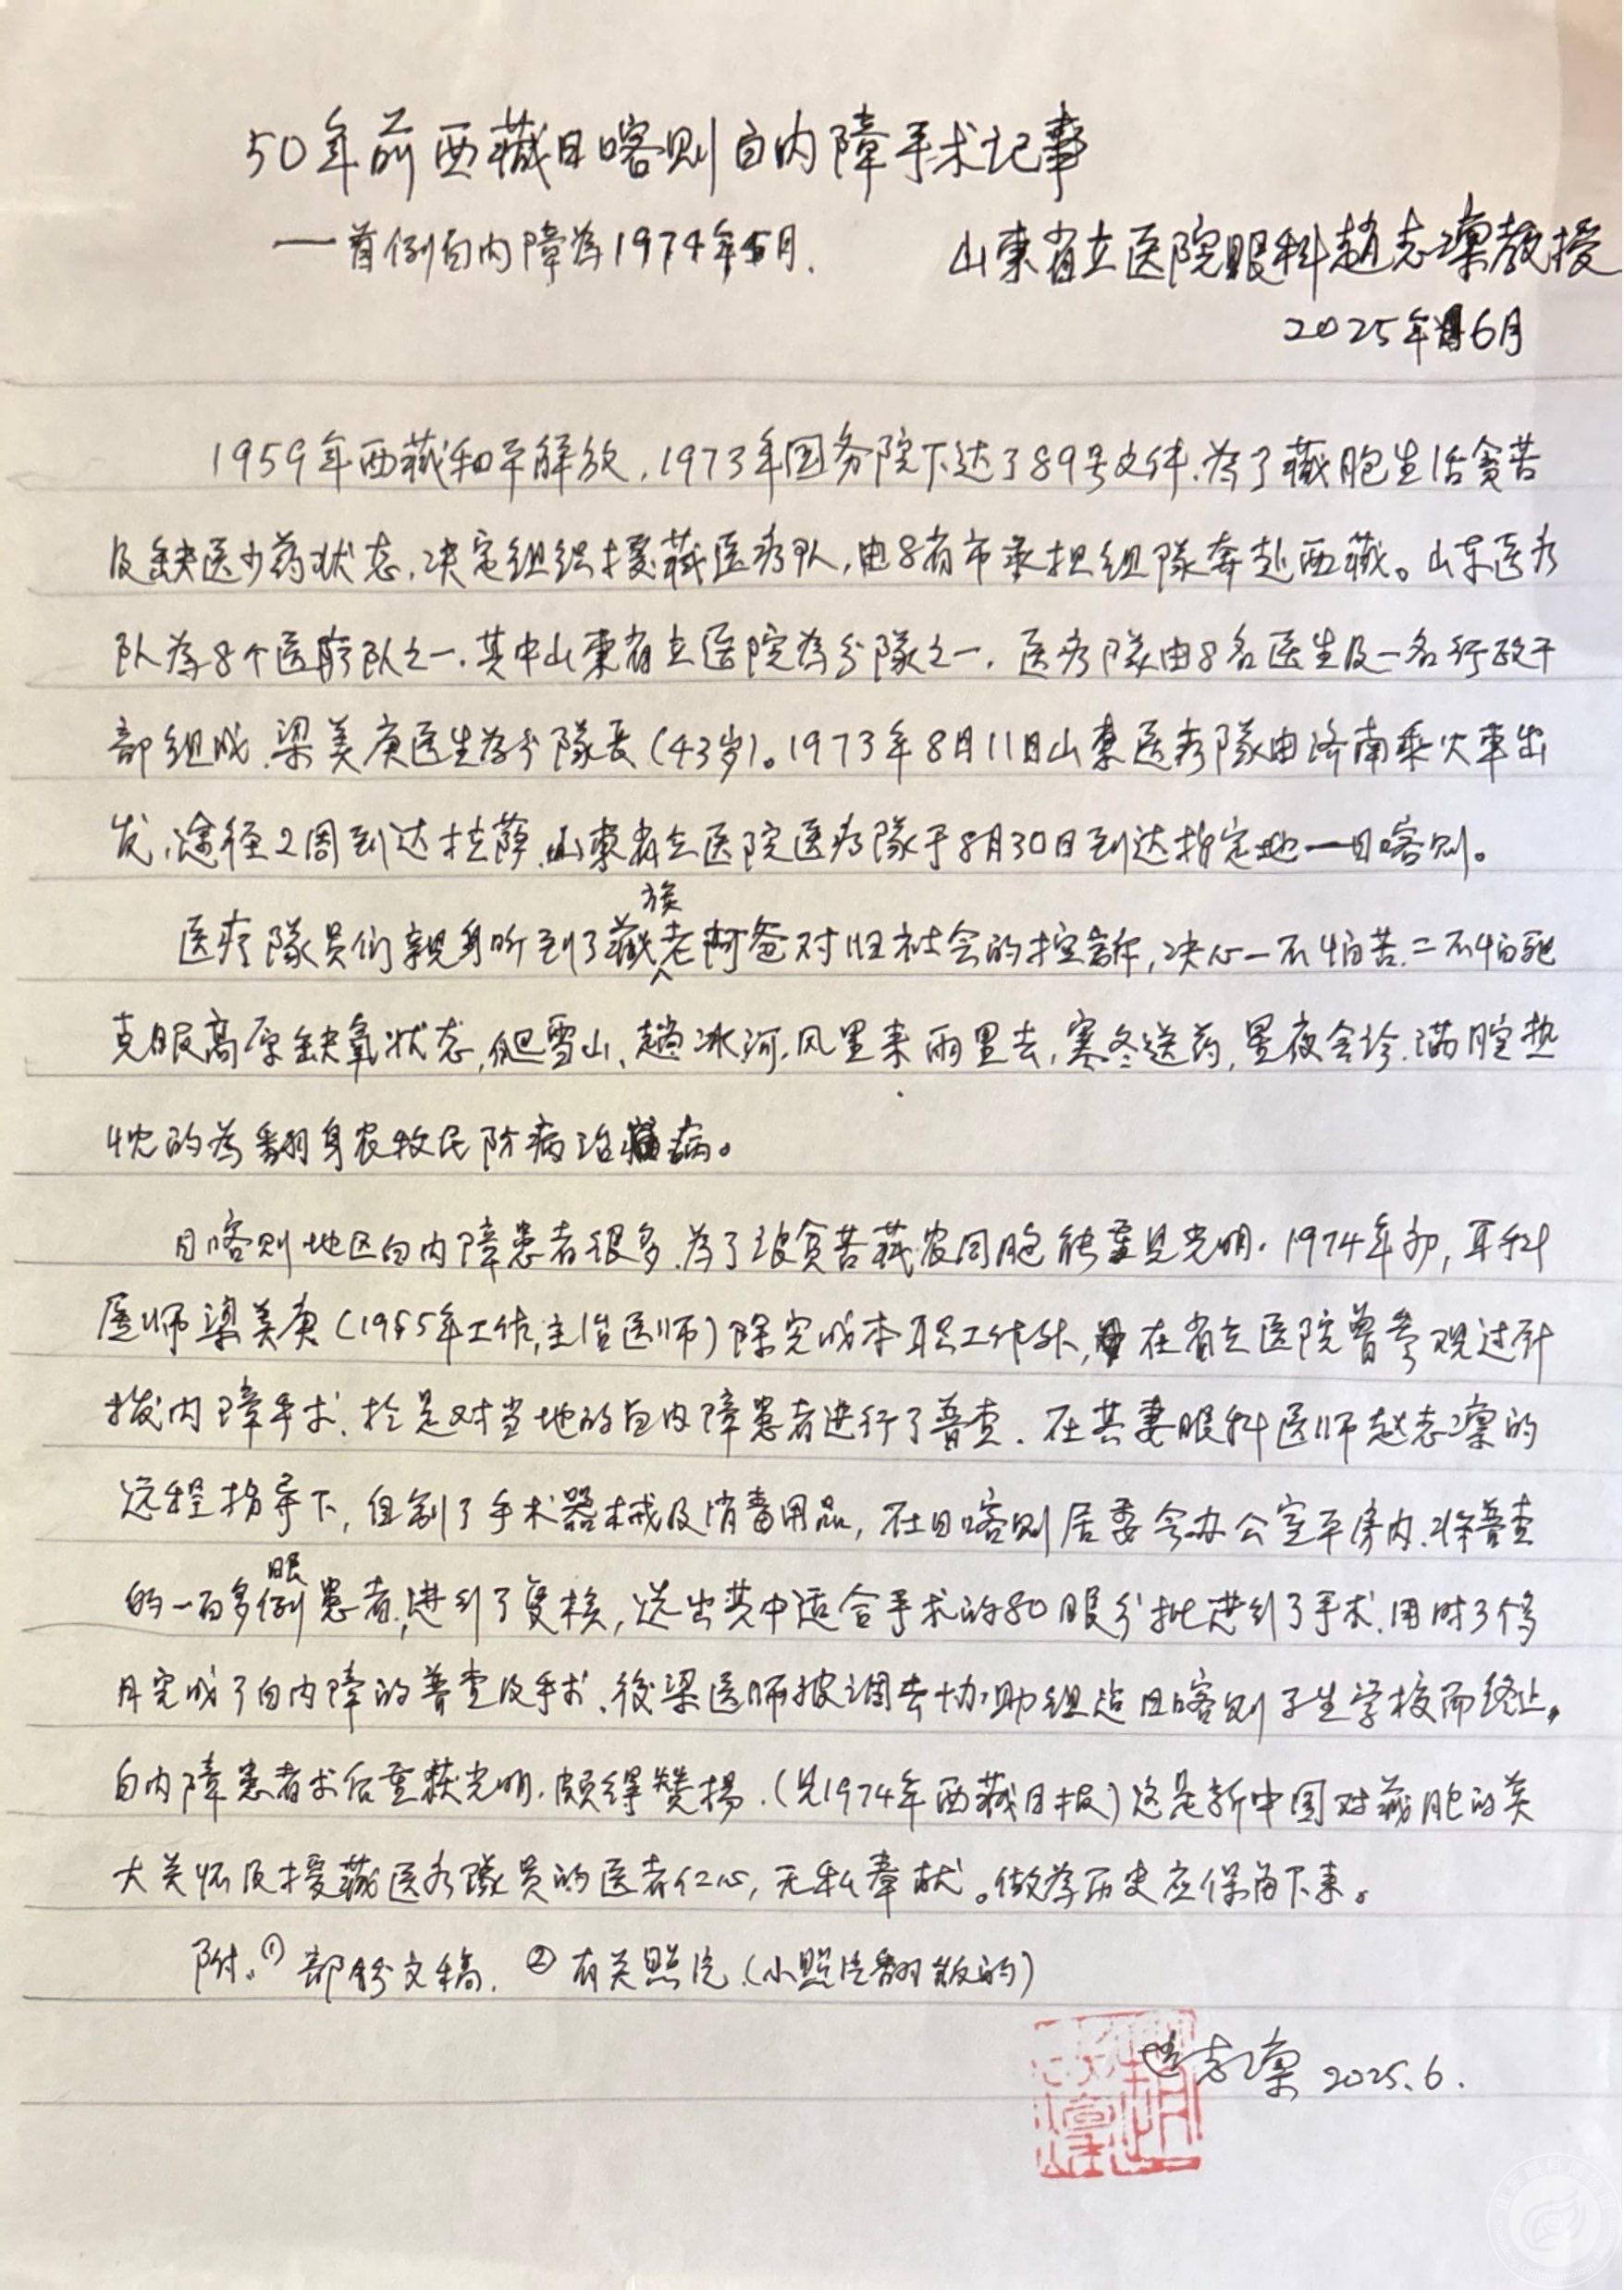 50年前西藏日喀则白内障手术记事
——首例白内障為1974年5月.
山東省立医院眼科趙志凛教授
2025年6月
1959年西藏和平解放,1973年国务院下达了89号文件.為了藏胞生活贫苦
及缺医少药状态,决定组织援藏医疗队,由8省市承担组隊奔赴西藏。山东医疗
队為8个医疗队之一.其中山東省立医院為分隊之一.医疗隊由8名医生及一名行政干
部组成.梁美庚医生為分隊長(43岁)。1973年8月11日山東医疗隊由济南乘火車出
发,途径2周到达拉萨.山東省立医院医疗隊于8月30日到达指定地—日喀则。
医疗隊员们親身听到了藏族老阿爸对旧社会的控诉,决心一不怕苦.二不怕死
克服高原缺氧状态,爬雪山、趟冰河.风里来雨里去,寒冬送药,星夜会诊.满腔热
忱的為翻身农牧民防病治病。
日喀则地区白内障患者很多.為了让贫苦藏农同胞能重見光明.1974年初,耳科
医师梁美庚(1955年工作,主治医师)除完成本职工作外,在省立医院曾参观过针
拨内障手术.於是对当地的白内障患者进行了普查.在其妻眼科医师赵志凛的
远程指导下,自制了手术器械及消毒用品,在日喀则居委会办公室平房内.将普查
的一百多眼例患者,进行了复核,选出其中适合手术的80眼分批进行了手术.用时3个多
月完成了白内障的普查及手术.後梁医师被调去协助组建日喀则卫生学校而终止.
白内障患者术后重获光明.颇得赞揚.(見1974年西藏日报)这是新中国对藏胞的关
大关怀及援藏医疗隊员的医者仁心,无私奉献。做為历史应保留下来。
附.①部分文稿.②有关照片.(小照片翻版的)
赵志凛 2025.6.